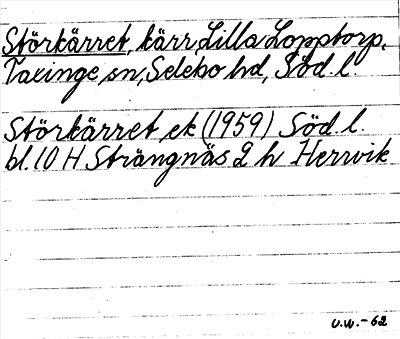 Störkärret, kärr, Lilla Lopptorp,
Taxinge sn, Selebo hd, Söd. l.
Störkärret ek (1959) Söd. l.
bl. 10 H Strängnäs 2 h Herrvik
U.W.-62